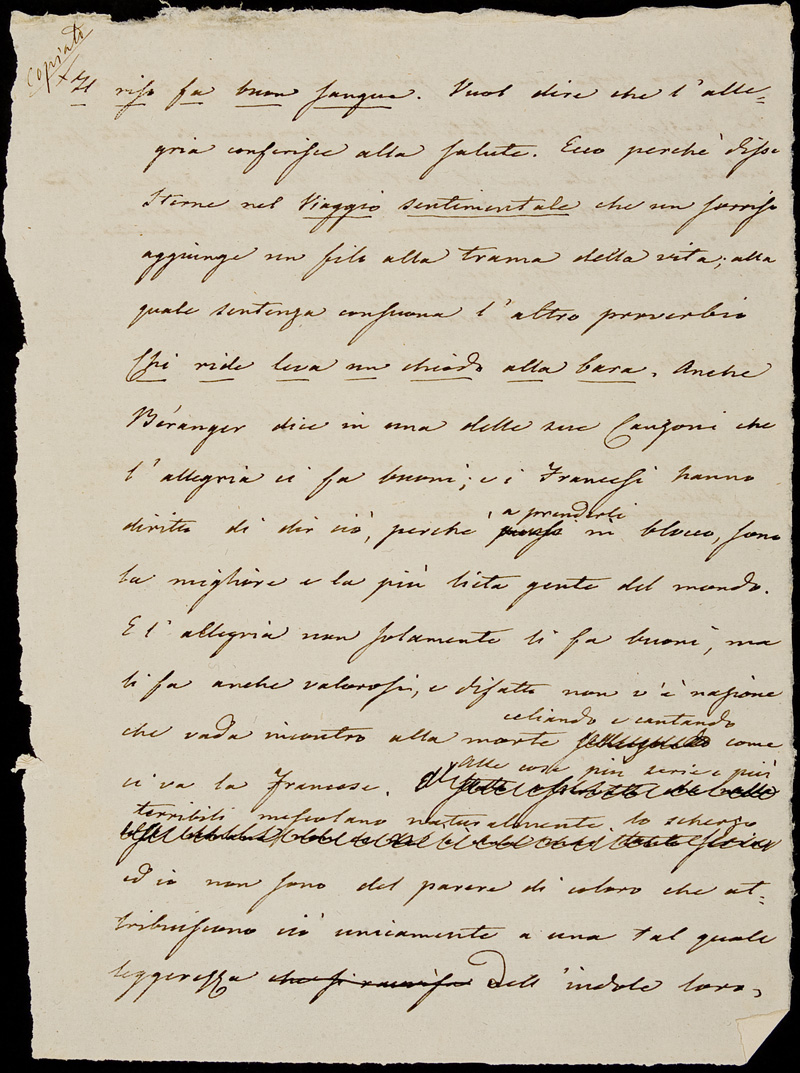 Copiato
× Il riso fa buon sangue. Vuol dire che l'alle=
gria conferisce alla salute. Ecco perchè disse
Sterne nel Viaggio sentimentale che un sorriso
aggiunge un filo alla trama della vita; alla
quale sentenza consuona l'altro proverbio
Chi ride leva un chiodo alla bara. Anche
Béranger dice in una delle sue Canzoni che
l'allegria ci fa buoni; e i Francesi hanno
a prenderli
diritto di dir ciò, perchè in blocco, sono
la migliore e la più lieta gente del mondo.
E l'allegria non solamente li fa buoni, ma
li fa anche valorosi, e difatto non v'è nazione
celiando e cantando
che vada incontro alla morte come
alle cose più serie e più
ci va la Francese.
terribili mescolano naturalmente lo scherzo
ed io non sono del parere di coloro che at=
tribuiscono ciò unicamente a una tal quale
leggerezza che si ravvisa dell'indole loro,